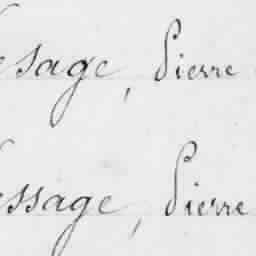 esage, Pierre
essage, Pierre